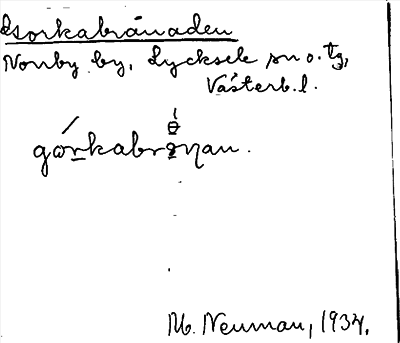 Gorkabrånaden
Norrby by, Lycksele sn o. tg,
Västerb. l.
górkabrǝŋan.
M. Neuman, 1937.